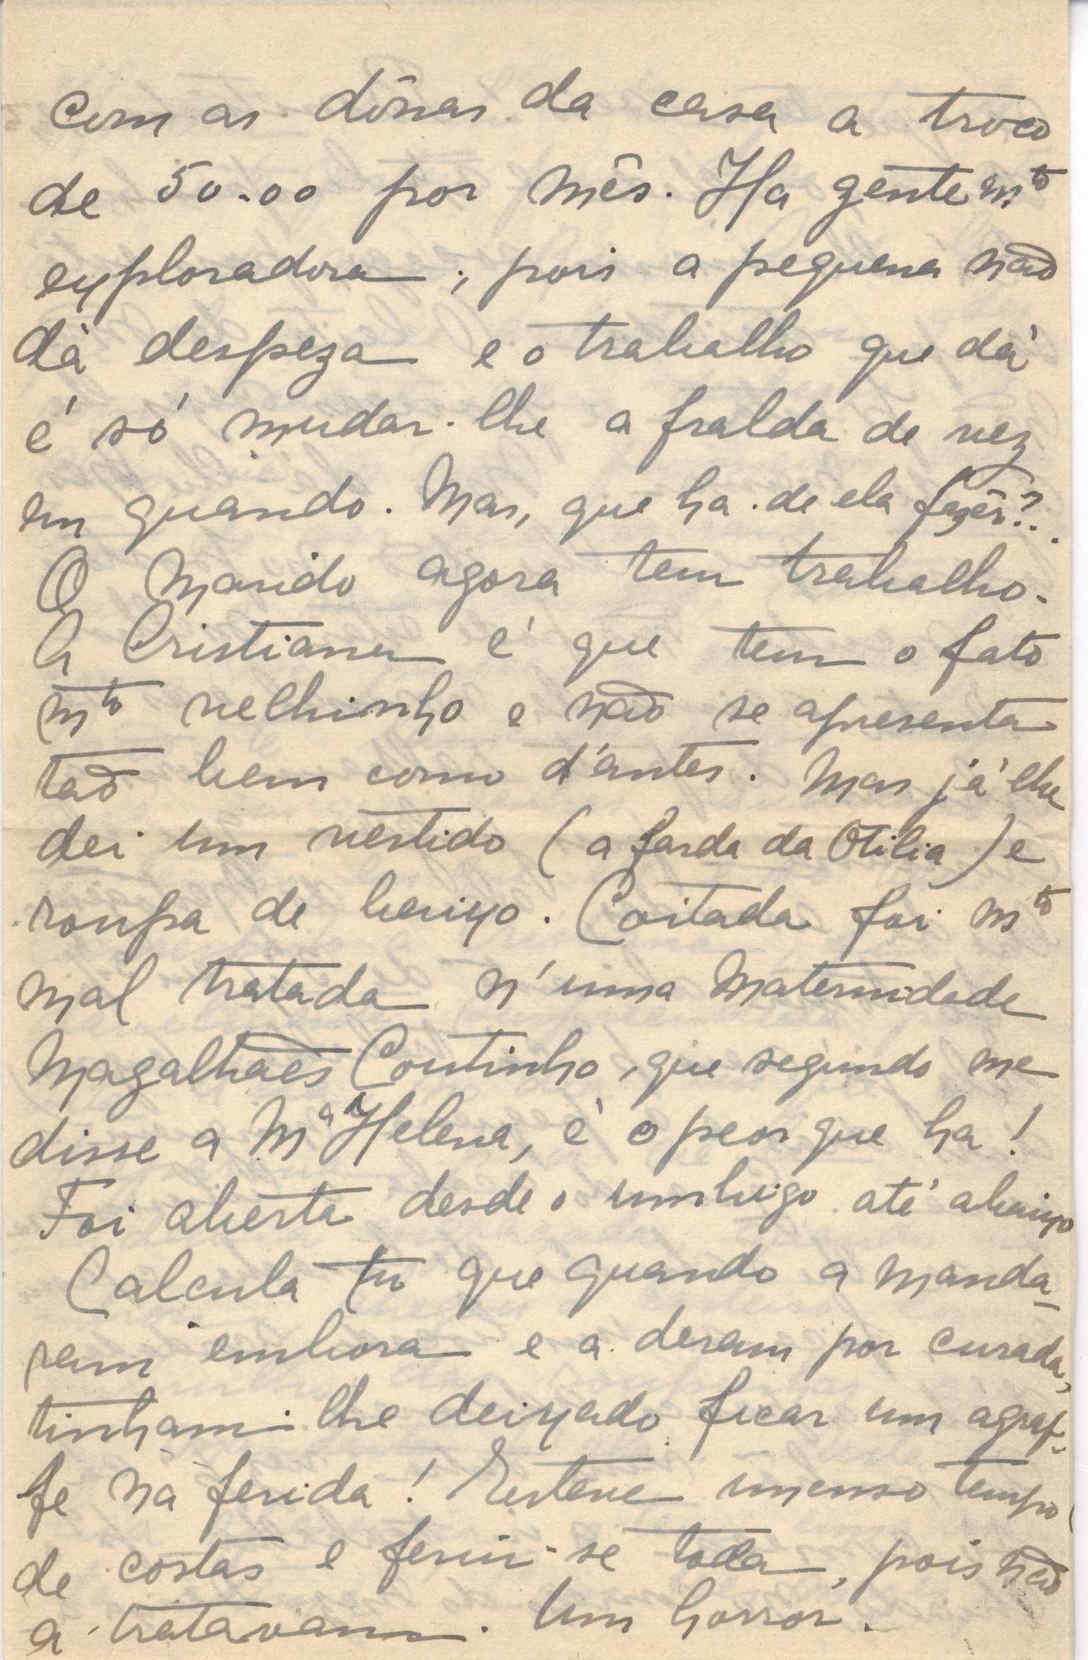 com as dônas da casa a troco
de 50.00 por mês. Ha gente mto
exploradora, pois a pequena não
dà despeza e o trabalho que dá
é só mudar-lhe a fralda de vez
em quando. Mas, que ha-de ela fazêr?.
O marido agora tem trabalho.
A Cristiana é que tem o fato
mto velhinho e não se apresenta
tão bem como d'antes. Mas já lhe
dei um vestido (a farda da Otilia) e
roupa de baixo. Coitada foi mto
mal tratada n'uma Maternidade
Magalhães Coutinho, que segundo me
disse a Mª Helena, é o peor que ha!
Foi aberta desde o umbigo até abaixo
Calcula tu que quando a manda-
ram embora e a deram por curada,
tinham-lhe deixado ficar um agraf-
fe na ferida! Esteve imenso tempo
de costas e feriu-se toda, pois não
a tratavam. Um horror.